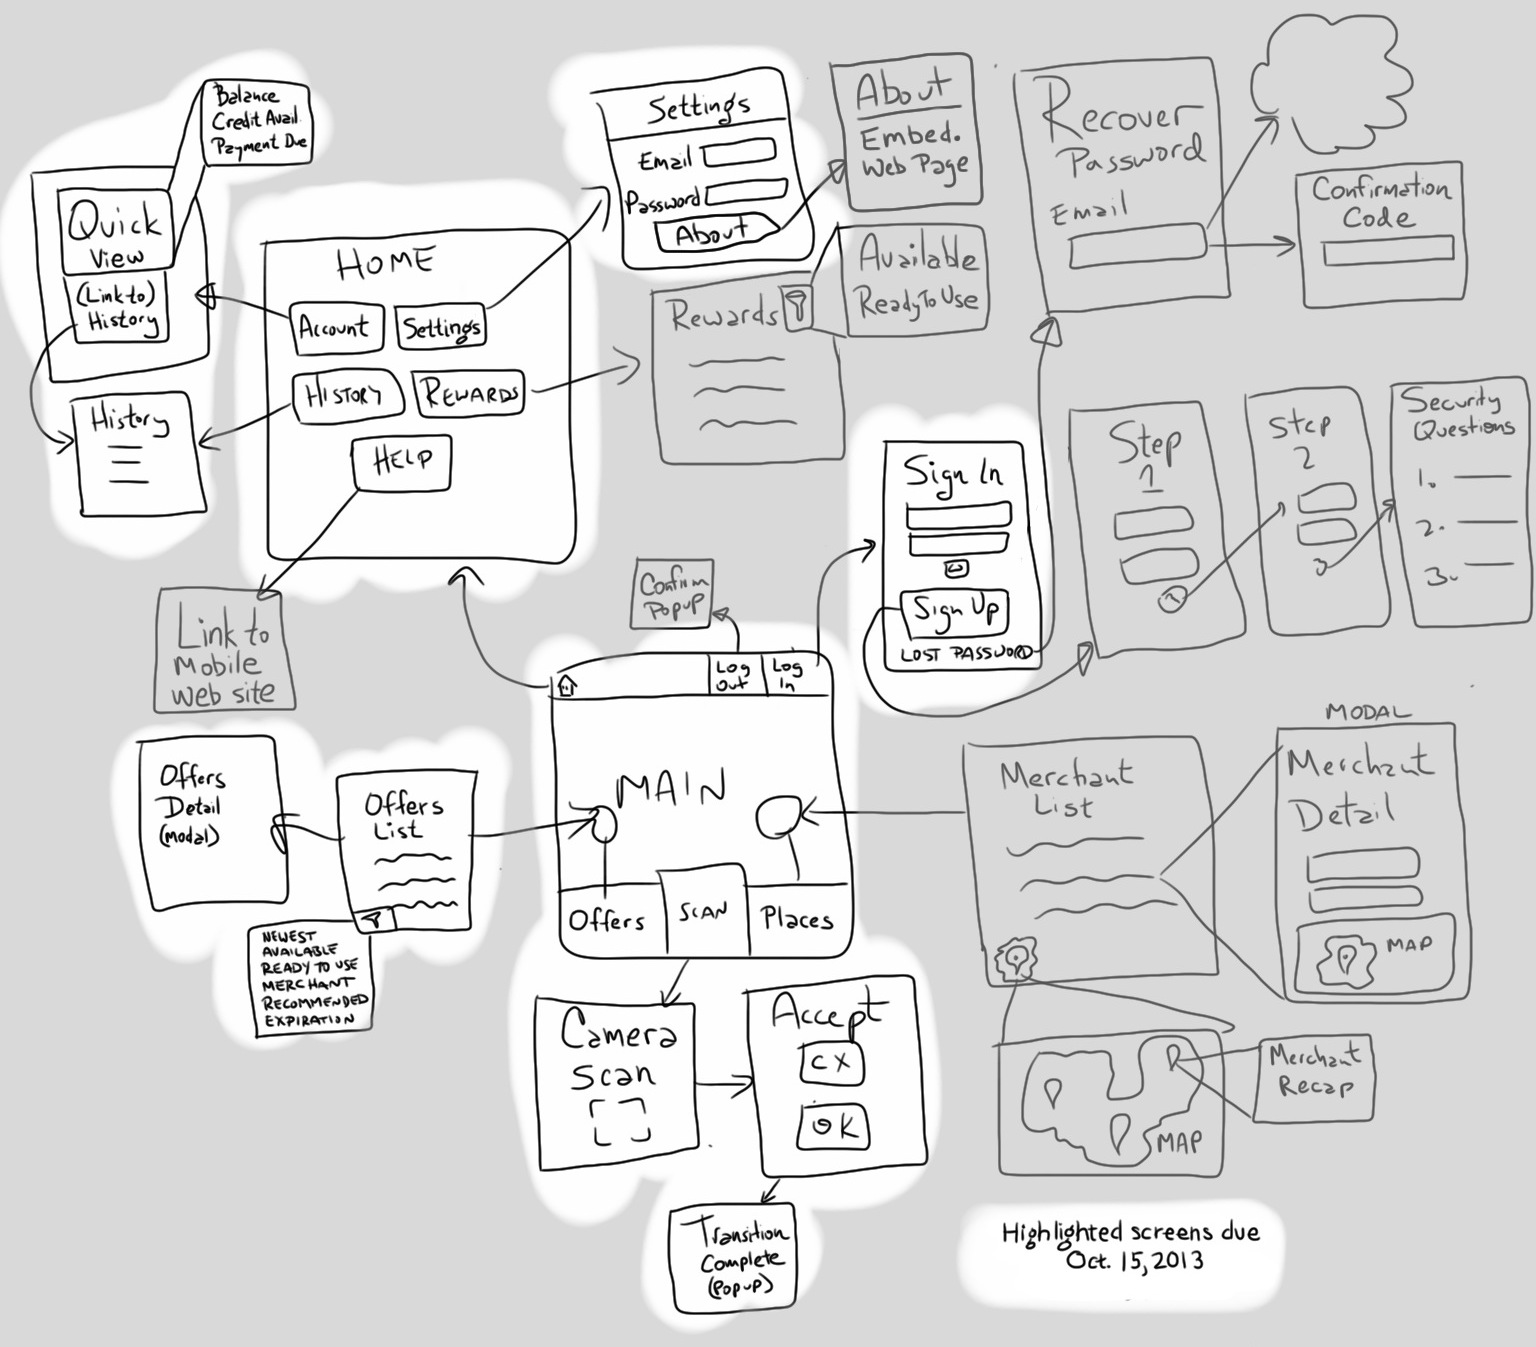 Balance
Credit Avail.
Payment Due
Quick
View
(Link to)
History
History
HOME
Account
Settings
HISTORY
REWARDS
HELP
Link to
Mobile
Web site
Settings
Email
Password
About
About
Embed.
Web Page
Rewards
Available
Ready To Use
Recover
Password
Email
Confirmation
Code
Sign In
Sign Up
LOST PASSWORD
Step
1
Step
2
Security
Questions
1.
2.
3.
Confirm
Popup
Log
Out
Log
In
MAIN
Offers
SCAN
Places
Offers
Detail
(Modal)
Offers
List
NEWEST
AVAILABLE
READY TO USE
MERCHANT
RECOMMENDED
EXPIRATION
Camera
Scan
Accept
CX
OK
Transition
Complete
(Popup)
Merchant
List
MODAL
Merchant
Detail
MAP
MAP
Merchant
Recap
Highlighted screens due
Oct. 15, 2013